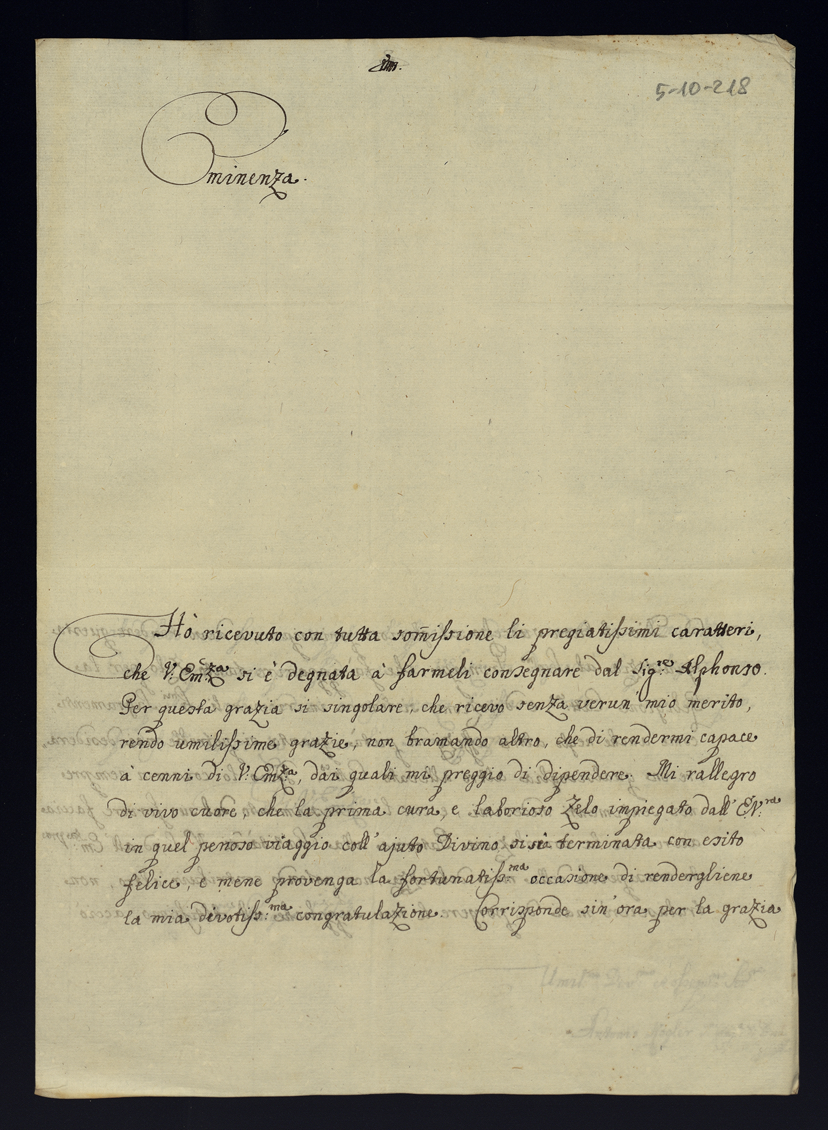 5-10-218
Eminenza.
Hò ricevuto con tutta som̄issione li pregiatissimi caratteri,
che V: Em:za si è degnata à farmeli consegnare dal Sigre Alphonso.
Per questa grazia si singolare, che ricevo senza verun mio merito,
rendo umilissime grazie, non bramando altro, che di rendermi capace
à cenni di V: Emza, dai quali mi preggio di dipendere. Mi rallegro
di vivo cuore, che la prima cura, e laborioso zelo impiegato dall' E.V:ra
in quel penoso viaggio coll' ajuto Divino si sia terminata con esito
felice, e mene provenga la fortunatiss:ma occasione di rendergliene
la mia devotiss:ma congratulazione. Corrisponde sin' ora per la grazia